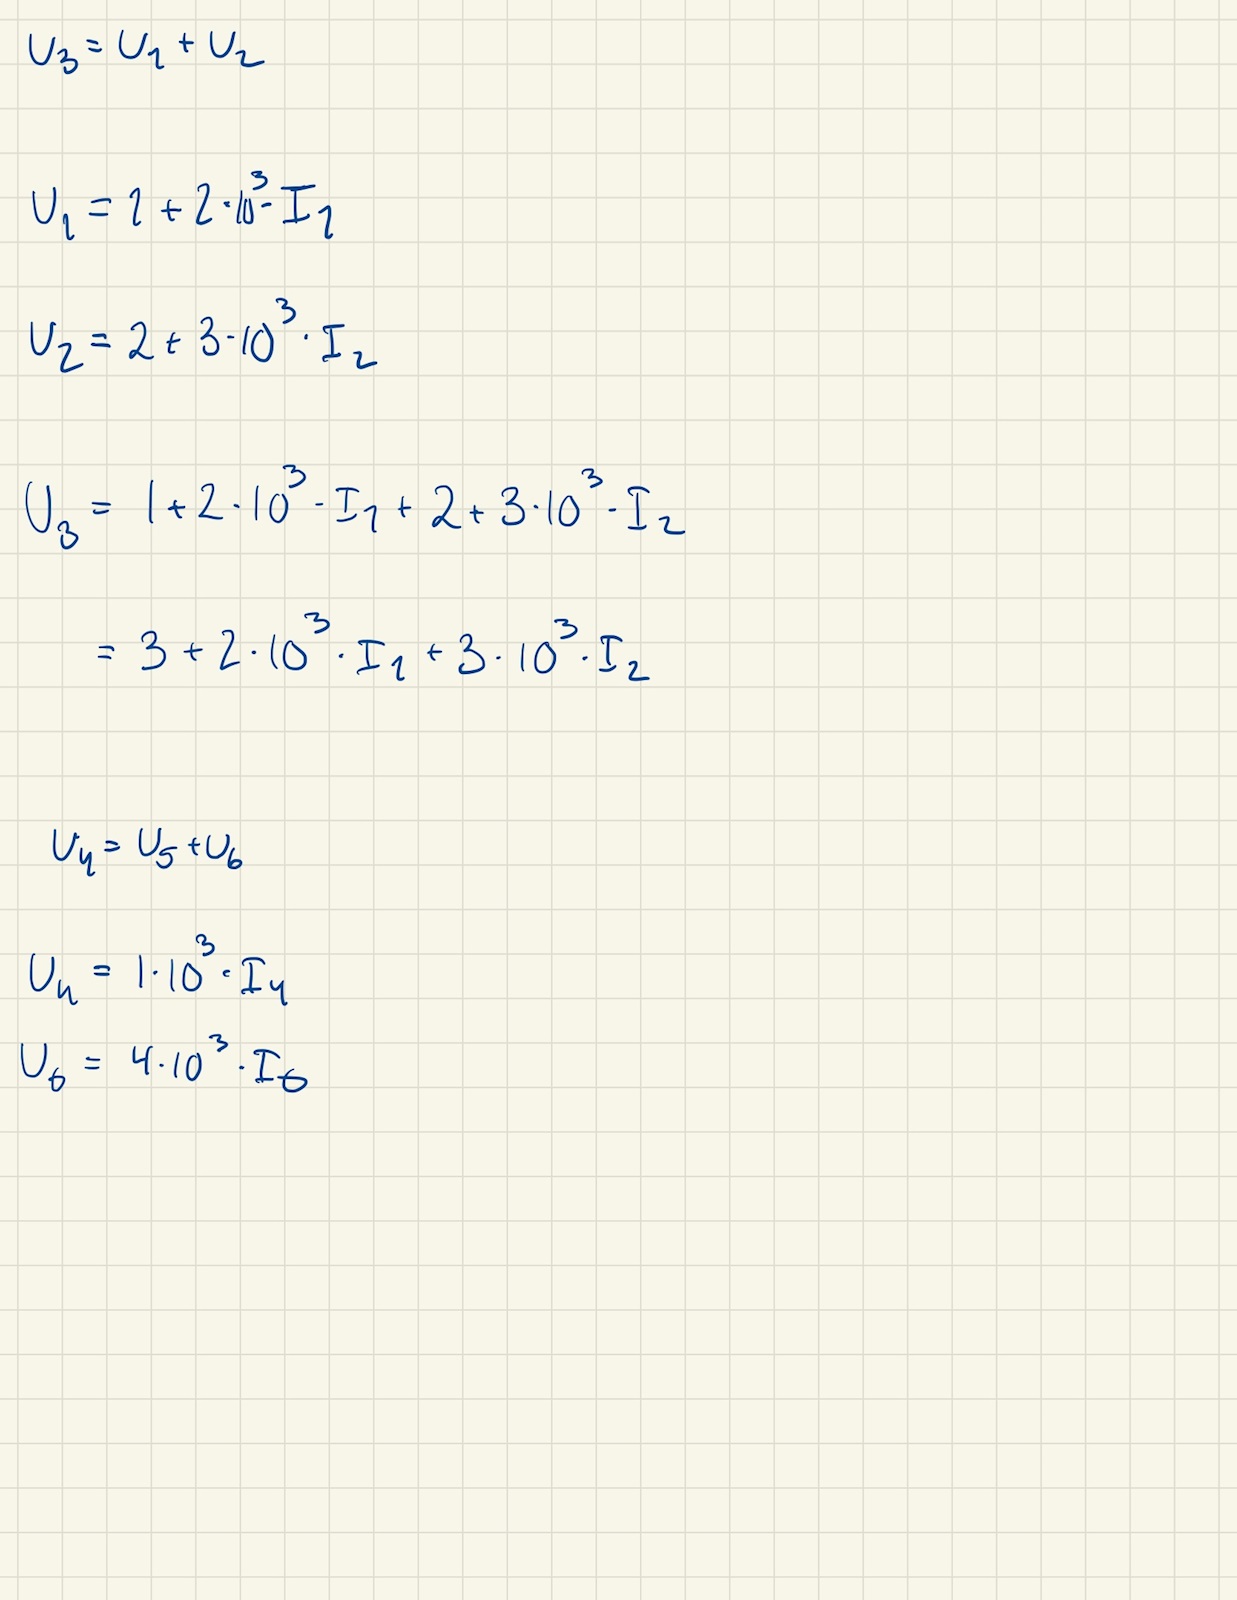 U₃ = U₁ + U₂
U₁ = 1 + 2·10³·I₁
U₂ = 2 + 3·10³·I₂
U₃ = 1 + 2·10³·I₁ + 2 + 3·10³·I₂
= 3 + 2·10³·I₁ + 3·10³·I₂
U₄ = U₅ + U₆
U₄ = 1·10³·I₄
U₆ = 4·10³·I₆